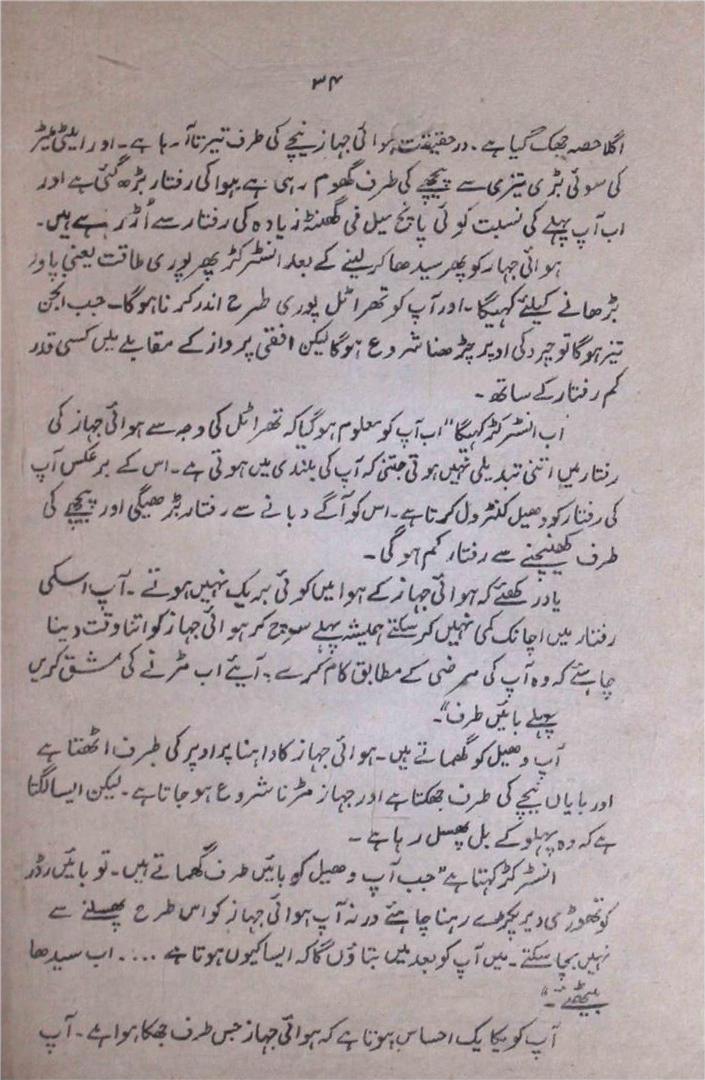 ۳۴
اگلا حصہ جھک گیا ہے۔ درحقیقت ہوائی جہاز نیچے کی طرف تیرتا آ رہا ہے۔ اور ایلٹی میٹر
کی سوئی بڑی تیزی سے پیچھے کی طرف گھوم رہی ہے ہوا کی رفتار بڑھ گئی ہے اور
اب آپ پہلے کی نسبت کوئی پانچ میل فی گھنٹہ زیادہ کی رفتار سے اُڑ رہے ہیں۔
ہوائی جہاز کو پھر سیدھا کر لینے کے بعد انسٹرکٹر پھر پوری طاقت یعنی پاور
بڑھانے کیلئے کہیگا۔ اور آپ کو تھراٹل پوری طرح اندر کرنا ہوگا۔ جب انجن
تیز ہوگا تو چرد کی اوپر چڑھنا شروع ہوگا لیکن افقی پرواز کے مقابلے میں کسی قدر
کم رفتار کے ساتھ۔
اب انسٹرکٹر کہیگا "اب آپ کو معلوم ہو گیا کہ تھراٹل کی وجہ سے ہوائی جہاز کی
رفتار میں اتنی تبدیلی نہیں ہوتی جتنی کہ آپ کی بلندی میں ہوتی ہے۔ اس کے برعکس آپ
کی رفتار کو وھیل کنٹرول کرتا ہے۔ اس کو آگے دبانے سے رفتار بڑھیگی اور پیچھے کی
طرف کھینچنے سے رفتار کم ہوگی۔
یاد رکھئے کہ ہوائی جہاز کے ہوا میں کوئی بریک نہیں ہوتے۔ آپ اسکی
رفتار میں اچانک کمی نہیں کر سکتے ہمیشہ پہلے سوچ کر ہوائی جہاز کو اتنا وقت دینا
چاہئے کہ وہ آپ کی مرضی کے مطابق کام کرے؛ آیئے اب مڑنے کی مشق کریں
پہلے بائیں طرف"۔
آپ وھیل کو گھماتے ہیں۔ ہوائی جہاز کا داہنا پر اوپر کی طرف اٹھتا ہے
اور بایاں نیچے کی طرف جھکتا ہے اور جہاز مڑنا شروع ہو جاتا ہے۔ لیکن ایسا لگتا
ہے کہ وہ پہلو کے بل پھسل رہا ہے۔
انسٹرکٹر کہتا ہے "جب آپ وھیل کو بائیں طرف گھماتے ہیں۔ تو بائیں رڈر
کو تھوڑی دیر پکڑے رہنا چاہئے ورنہ آپ ہوائی جہاز کو اس طرح پھسلنے سے
نہیں بچا سکتے۔ میں آپ کو بعد میں بتاؤں گا کہ ایسا کیوں ہوتا ہے .... اب سیدھا
بیٹھئے۔"
آپ کو یکایک احساس ہوتا ہے کہ ہوائی جہاز جس طرف جھکا ہوا ہے۔ آپ